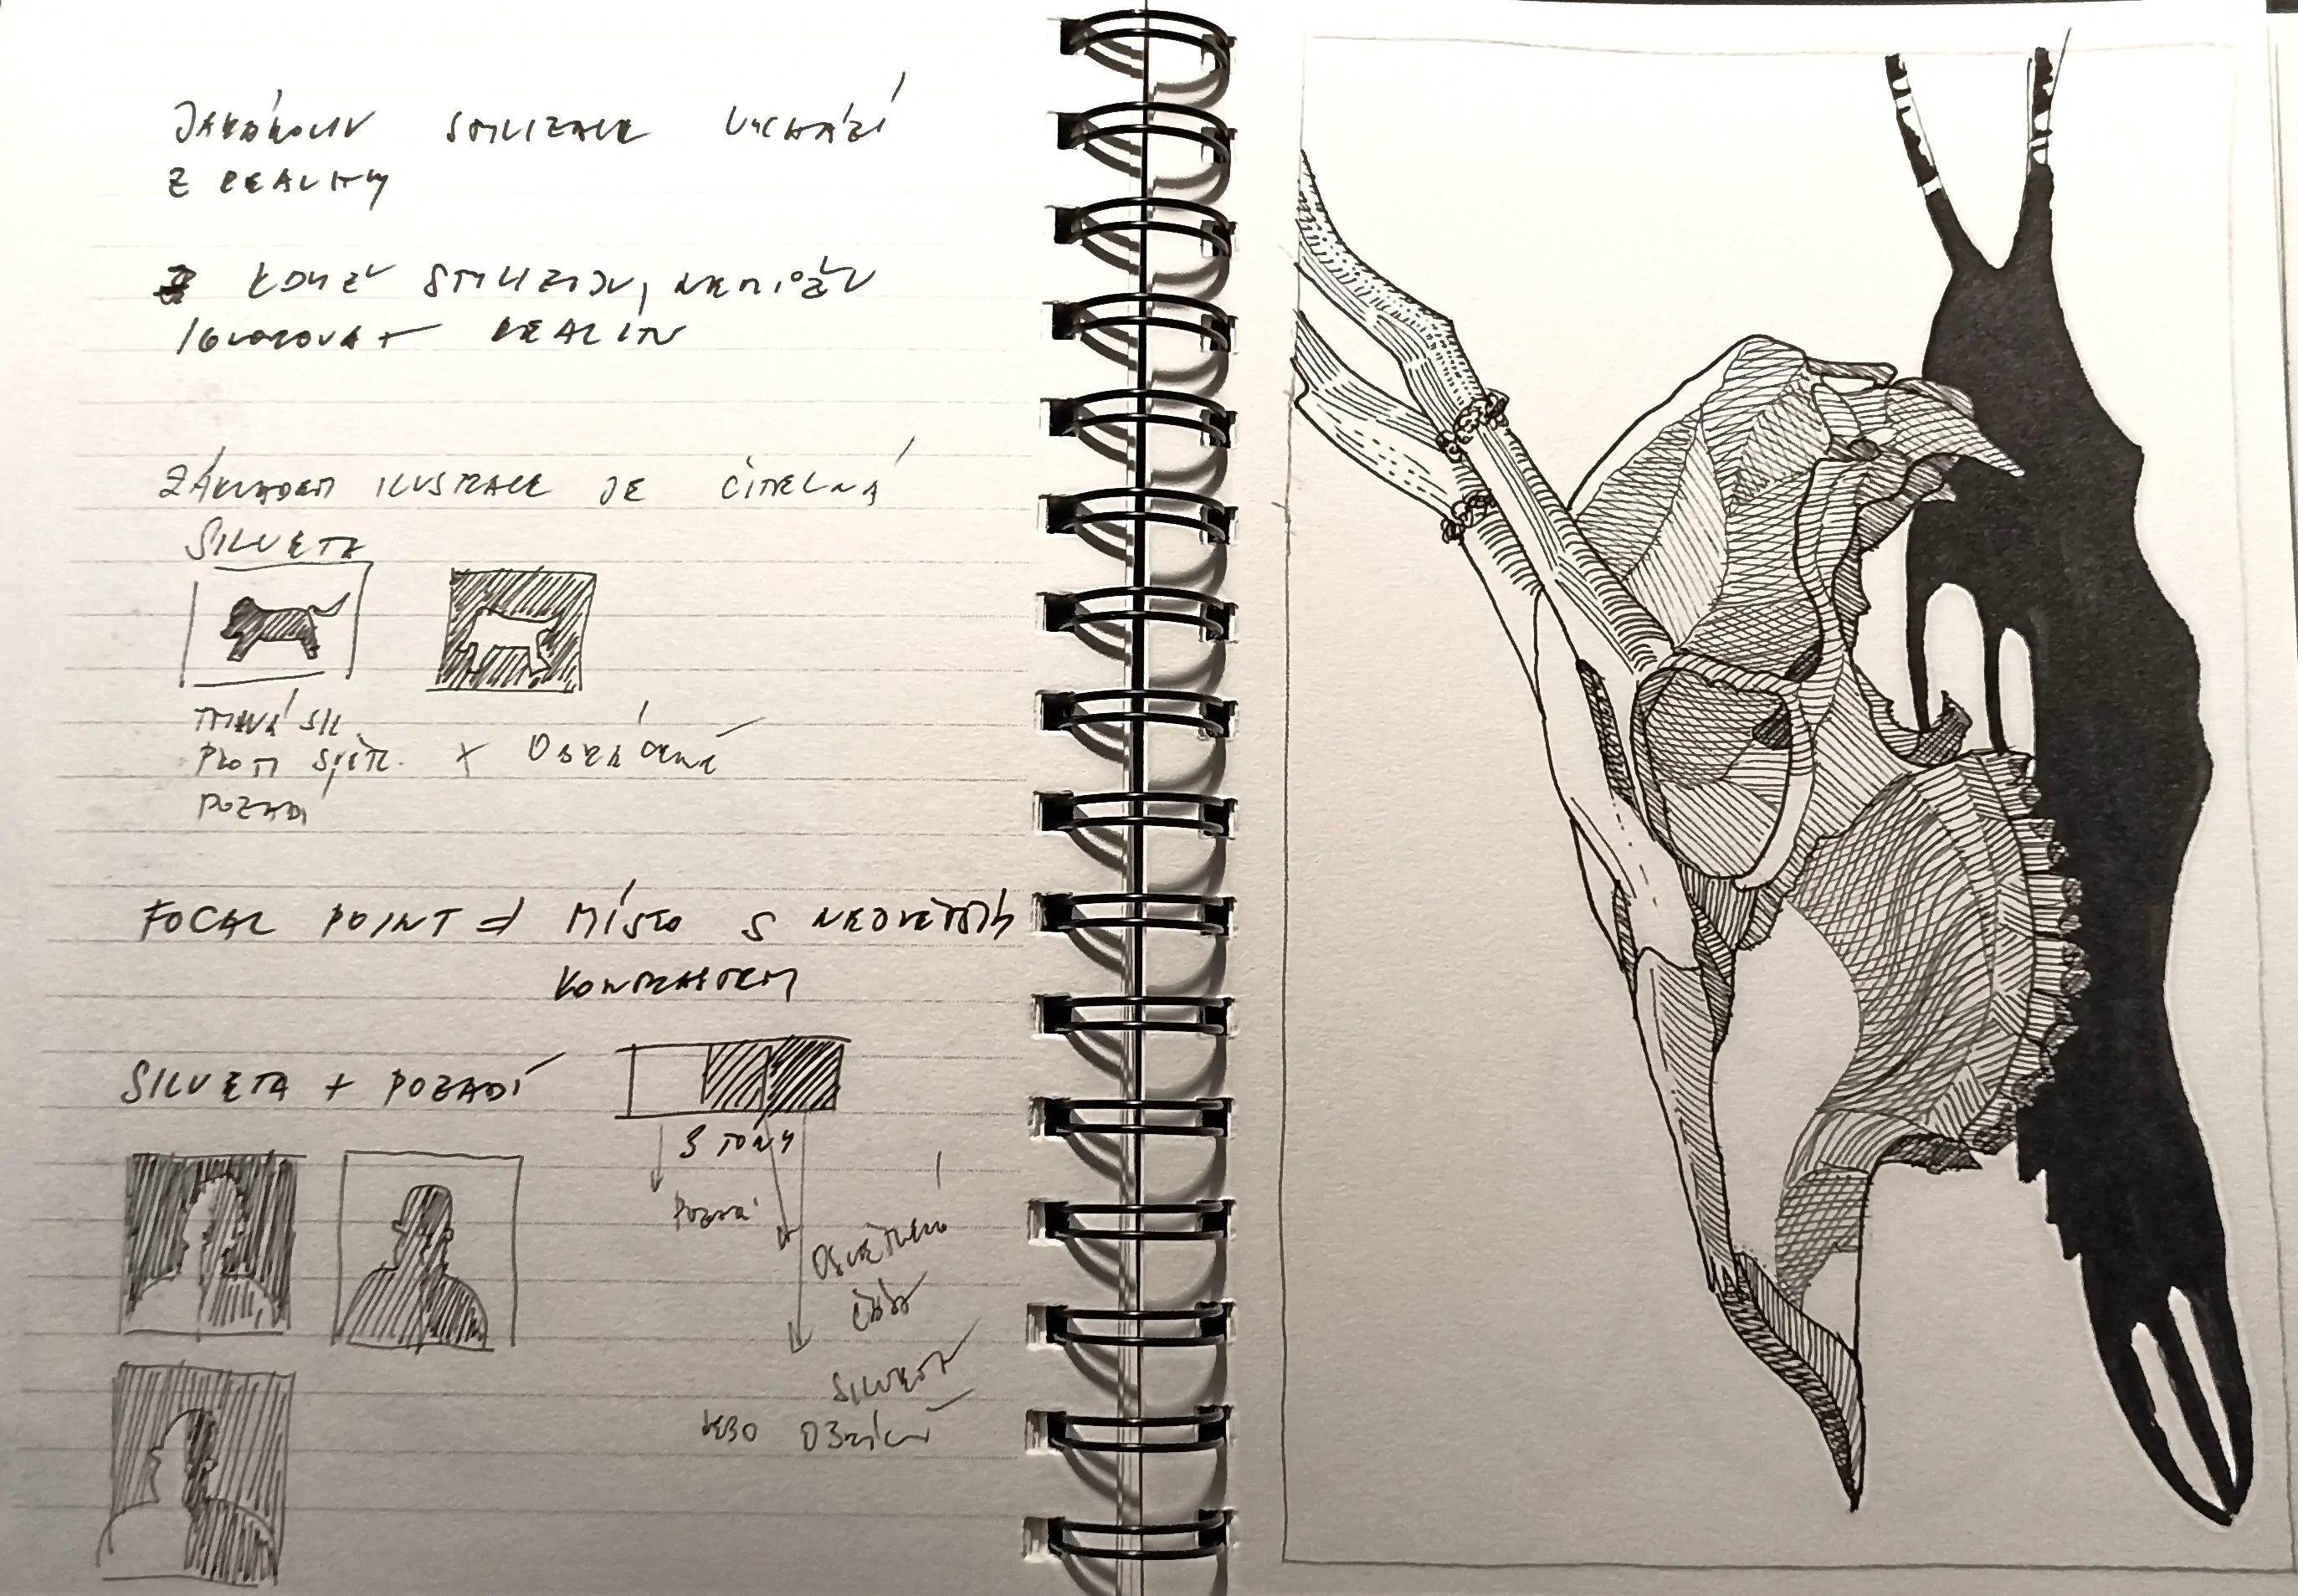 JAKÁKOLIV STYLIZACE VYCHÁZÍ
Z REALITY
KDYŽ STYLIZUJU, NEMŮŽU
IGNOROVAT REALITU
ZÁKLADEM ILUSTRACE JE ČITELNÁ
SILUETA
TMAVÁ SIL.
PROTI SVĚTL. X OBRÁCENĚ
POZADÍ
FOCAL POINT ⇒ MÍSTO S NEJVĚTŠÍM
KONTRASTEM
SILUETA + POZADÍ
3 TÓNY
POZADÍ
OSVĚTLENÁ
ČÁST
SILUETA
NEBO